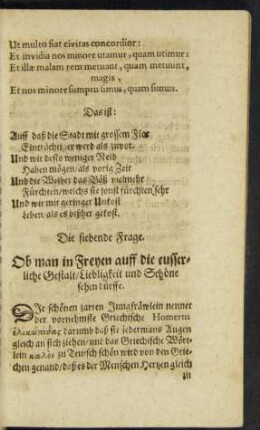 Ut multo fiat civitas concordior:
Et invidia nos minore utamur, quam utimur:
Et illæ malam rem metuant, quam metuunt,
magis,
Et nos minore sumptu simus, quam sumus.
Das ist:
Auff daß die Stadt mit grossem
Einträchtiger werd als zuvor.
Und wir desto weniger Neid
Haben mögen/als vorig Zeit
Und die Weiber das Böß vielmehr
Fürchten/welchs sie sonst fürchten sehr
Und wir mit geringer Unkost
Leben/als es bißher gekost.
Die siebende Frage.
Ob man in Freyen auff die eusser-
liche Gestalt/Liebligkeit und Schöne
sehen dürffe.
DIe schönen zarten Jungfräwlein nennet
der vornehmste Griechische Homerus
ἑλικώπιδας darumb daß sie jedermans Augen
gleich an sich ziehen/und das Griechische Wört-
lein καλὸν zu Teutsch schön wird von den Grie-
chen genand/daß es der Menschen Hertzen gleich